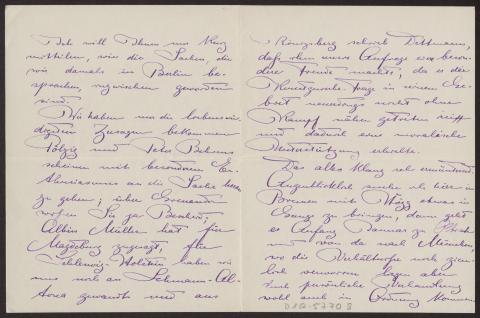 Ich will Ihnen nur kurz
mitteilen, wie die Sachen, die
wir damals in Berlin be-
sprachen, inzwischen geworden
sind.
Wir haben nur die
Zusagen bekommen
Pölzig und Peter Behrens
scheinen mit besonderem En-
thusiasmus an die Sache
zu gehen; über
Sie ja Bescheid;
Albin Müller hat für
Magdeburg zugesagt, für
Schleswig-Holstein haben wir
uns noch an Lehmann-Al-
tona gewandt und aus
Königsberg schrieb Dettmann,
daß ihm unsre Anfrage
dere Freude macht, da er der
Frage in seinem Ge-
biet neuerdings nicht ohne
Kampf näher getreten sei
und dadurch eine moralische
Unterstützung erhielte.
Das alles klang sehr ermutigend.
Augenblicklich suche ich hier in
Bremen mit etwas in
Gange zu bringen, dann geht
es Anfang Januar zu
und von da nach München,
wo die Verhältnisse noch ziem-
lich verworren liegen aber
durch persönliche Verhandlung
wohl auch in Ordnung kommen